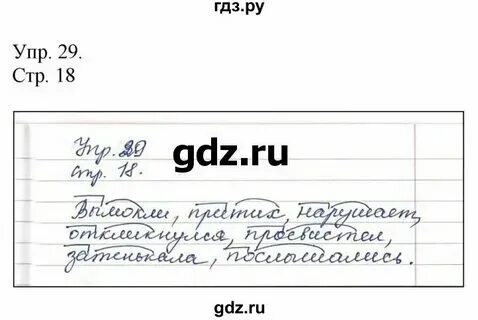 гдз.ру
Упр. 29.
Стр. 18
Упр. 29
gdz.ru
стр. 18.
Взмокли, притих, нарушает,
откликнулся, просвистел,
затенькала, послышались.
gdz.ru